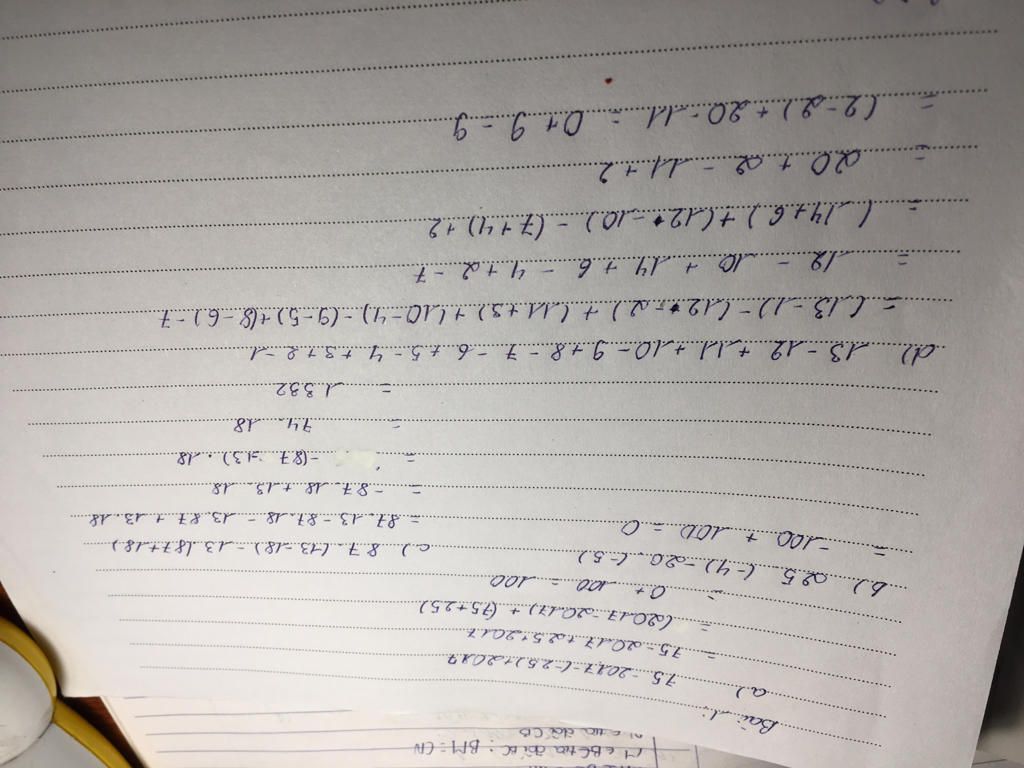 Bài 1:
a) 75 - 2017 - (-25) + 2017
= 75 - 2017 + 25 + 2017
= (2017 - 2017) + (75 + 25)
= 0 + 100 = 100
b) 25 . (-4) - 20 . (-5)
= -100 + 100 = 0
c) 87 . (13 - 18) - 13 (87 + 18)
= 87 . 13 - 87 . 18 - 13 . 87 + 13 . 18
= -87 . 18 + 13 . 18
= -(87 - 13) . 18
= 74 . 18
= 1332
d) 13 - 12 + 11 + 10 - 9 + 8 - 7 - 6 + 5 - 4 + 3 + 2 - 1
= (13 - 1) - (12 - 2) + (11 + 3) + (10 - 4) - (9 - 5) + (8 - 6) - 7
= 12 - 10 + 14 + 6 - 4 + 2 - 7
= (14 + 6) + (12 - 10) - (7 + 4) + 2
= 20 + 2 - 11 + 2
= (2 - 2) + 20 - 11 = 0 + 9 = 9
M ∈ BC
: BM = CN